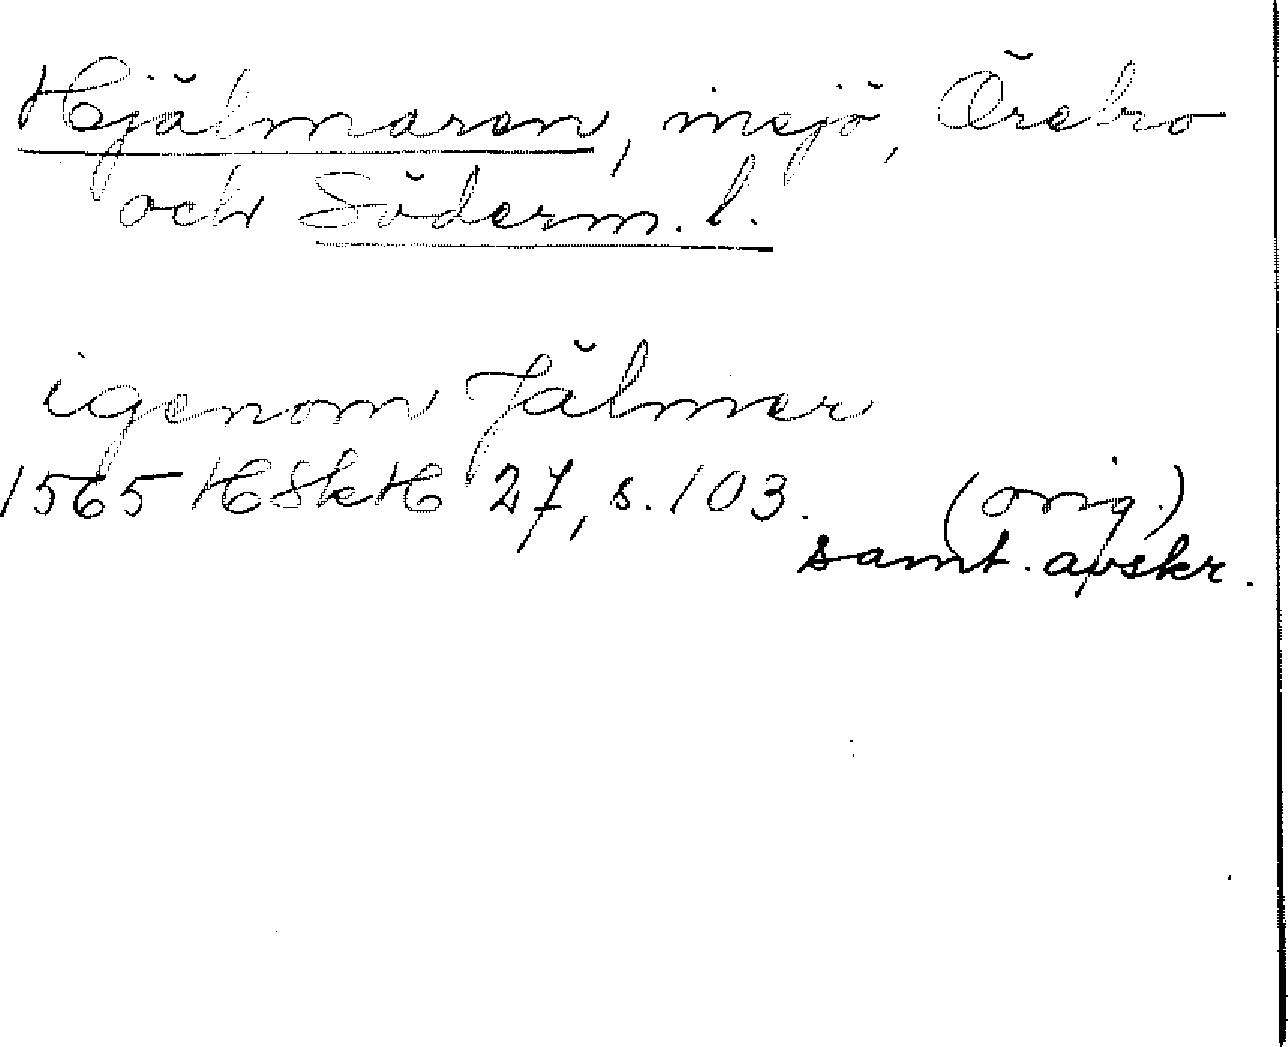 Hjälmaren, insjö, Örebro
och Söderm. l.
igenom Jälmer
1565 HSkH 27, s. 103. (orig.)
samt. avskr.